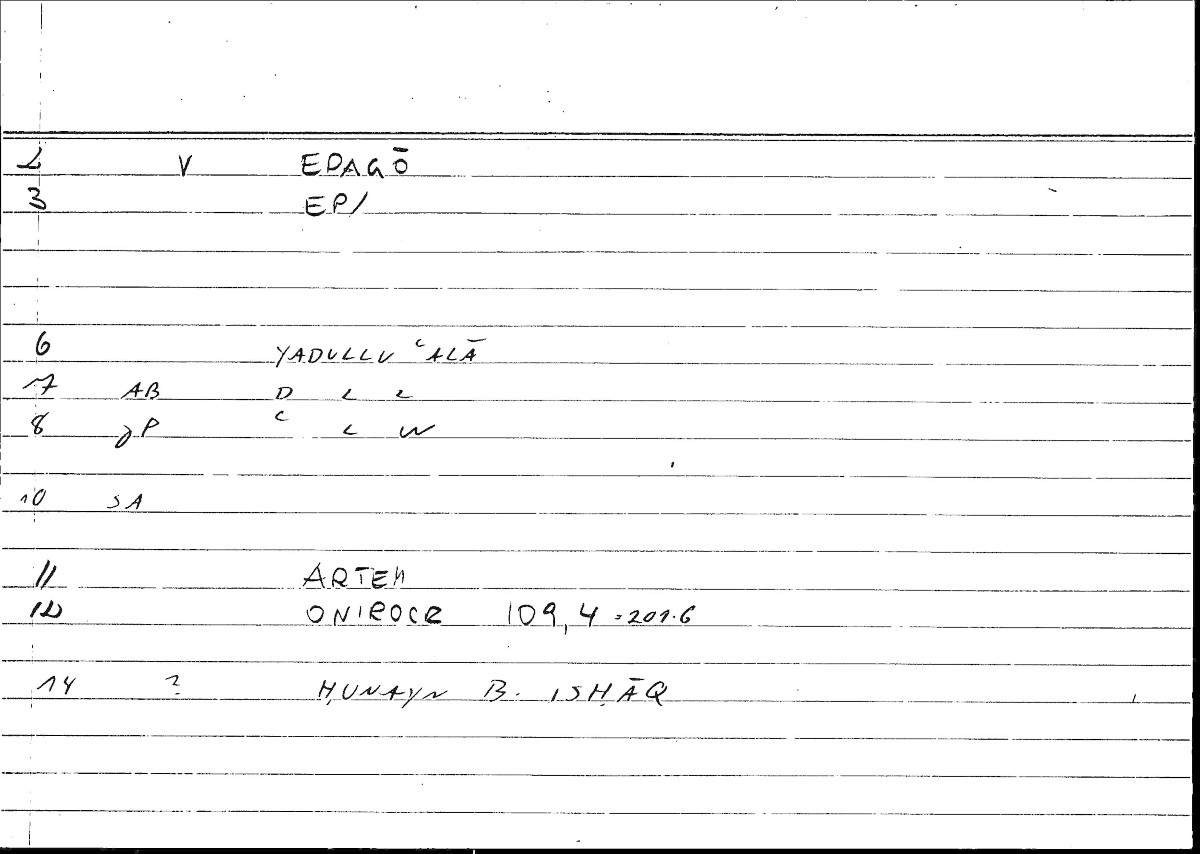 2 V EPAGŌ
3 EPI
6 YADULLU ʿALĀ
7 AB D L L
8 JP ʿ L W
10 SA
11 ARTEM
12 ONIROCR 109,4 = 201.6
14 ? ḤUNAYN B. ISḤĀQ